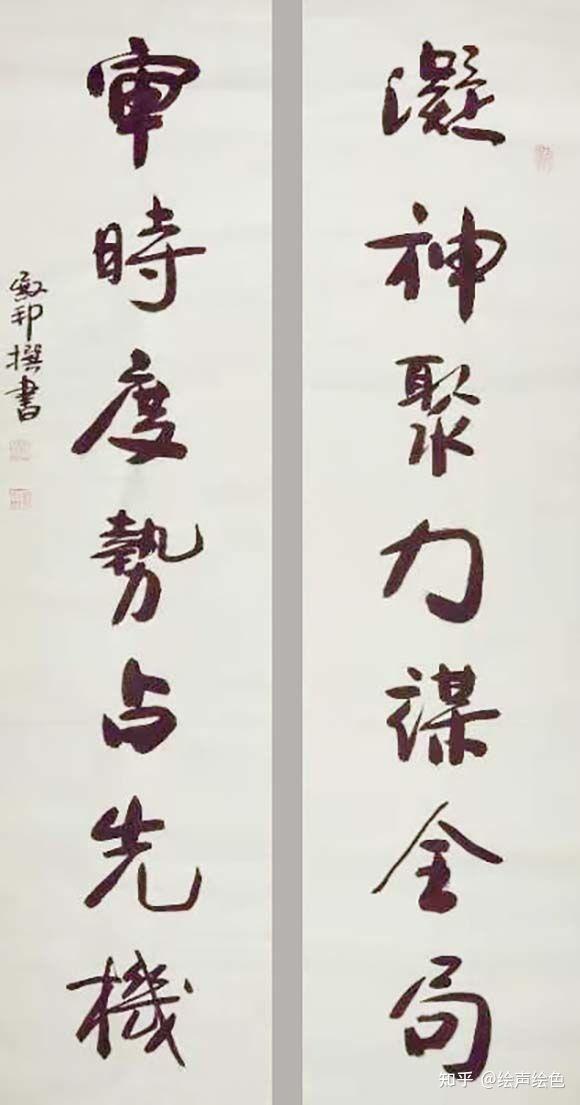 凝神聚力謀全局
審時度勢占先機
敬邦撰書
知乎 @绘声绘色